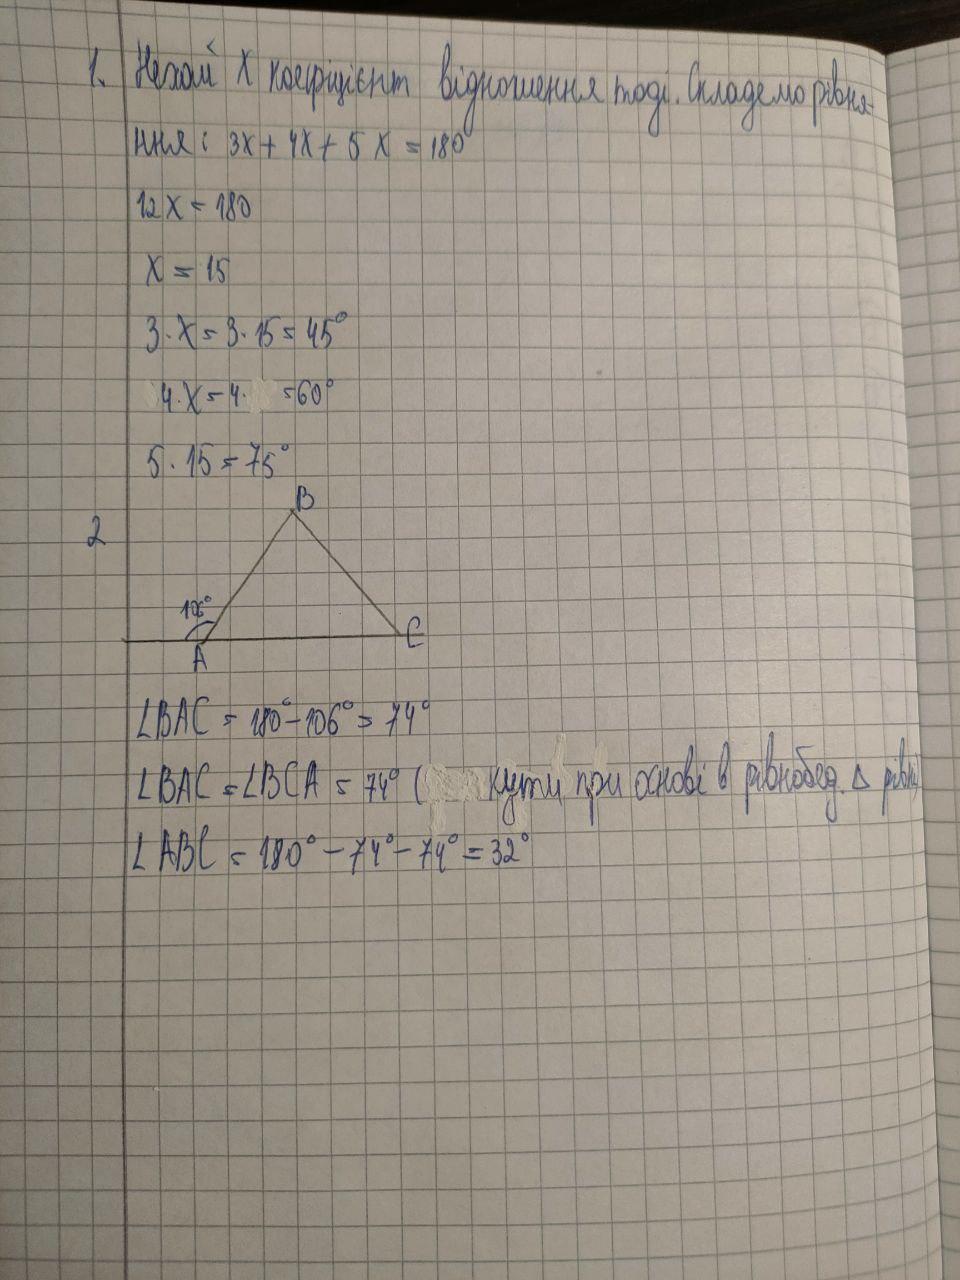 1. Нехай X коефіцієнт відношення тоді. Складемо рівня-
ння: 3x + 4x + 5 x = 180°
12 x = 180
x = 15
3 · x = 3 · 15 = 45°
4 · x = 4 · = 60°
5 · 15 = 75°
2
B
106°
A
C
∠BAC = 180° - 106° = 74°
∠BAC = ∠BCA = 74° ( кути при основі в рівнобед. Δ рівні)
∠ABC = 180° - 74° - 74° = 32°